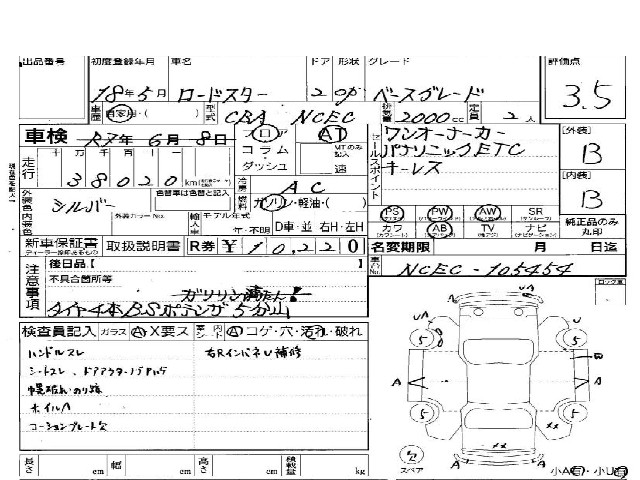 出品番号 初度登録年月 車名 ドア 形状 グレード 評価点
18年5月 ロードスター 2 OP ベースグレード 3.5
車歴 自家用・( ) 型式 CBA NCEC 排気量 2000cc 定員 2人
車検 R7年6月8日 フロア コラム・ダッシュ AT MTのみ記入 速
走行 十万 万 千 百 十 38020km
冷房 AC
燃料 ガソリン・軽油・( )
セールスポイント
ワンオーナーカー
パナソニックETC
キーレス
[外装] B
[内装] B
外装色 シルバー 色替車は色替と記入
内装色 外装カラーNo. 輸入車 モデル年式 年・不明 D車・並 右H・左H
PS PW AW SR
カワ AB TV ナビ
純正品のみ丸印
新車保証書 取扱説明書 R券 ¥10,220 名変期限 月 日迄
注意事項 後日品[ ] 車台No. NCEC-105454
不具合箇所等
ガソリン満タン!
タイヤ4本BSポテンザ5分山
ロック車
検査員記入 ガラス A・X要ス 内 A コゲ・穴・汚れ・破れ
ハンドルスレ 右RインパネU補修
シートスレ、ドアアウター
ホイルA
コーションプレート欠
UA A A UA
5 5
A A B
5 5
XX
XX
A A
2 スペア
小A有・小U有
長さ cm 幅 cm 高さ cm 積載量 kg